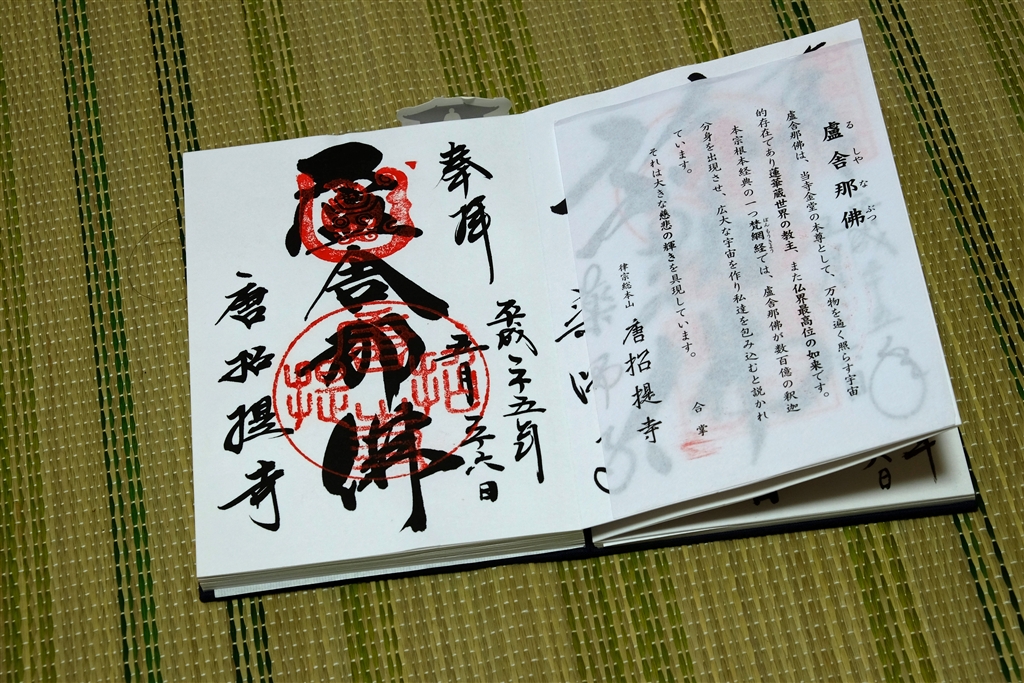 盧舎那佛
る しや な ぶつ
盧舎那佛は、当寺金堂の本尊として、万物を遍く照らす宇宙
的存在であり蓮華蔵世界の教主、また仏界最高位の如来です。
本宗根本経典の一つ梵網経では、盧舎那佛が数百億の釈迦
ぼんもうきょう
分身を出現させ、広大な宇宙を作り私達を包み込むと説かれ
ています。
それは大きな慈悲の輝きを具現しています。
合掌
律宗総本山 唐招提寺
奉拝
平成二十五年
五月二十六日
盧舎那佛
唐招提寺